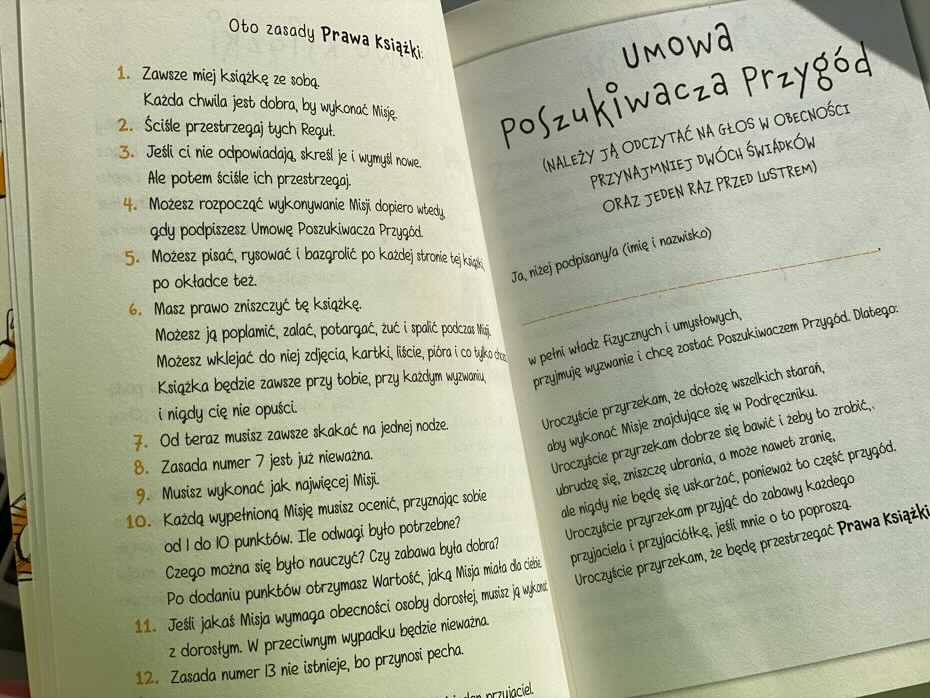 Oto zasady Prawa Książki:
1. Zawsze miej książkę ze sobą.
Każda chwila jest dobra, by wykonać Misję.
2. Ściśle przestrzegaj tych Reguł.
3. Jeśli ci nie odpowiadają, skreśl je i wymyśl nowe.
Ale potem ściśle ich przestrzegaj.
4. Możesz rozpocząć wykonywanie Misji dopiero wtedy,
gdy podpiszesz Umowę Poszukiwacza Przygód.
5. Możesz pisać, rysować i bazgrolić po każdej stronie tej książki,
po okładce też.
6. Masz prawo zniszczyć tę książkę.
Możesz ją poplamić, zalać, potargać, żuć i spalić podczas Misji.
Możesz wklejać do niej zdjęcia, kartki, liście, pióra i co tylko
Książka będzie zawsze przy tobie, przy każdym wyzwaniu,
i nigdy cię nie opuści.
7. Od teraz musisz zawsze skakać na jednej nodze.
8. Zasada numer 7 jest już nieważna.
9. Musisz wykonać jak najwięcej Misji.
10. Każdą wypełnioną Misję musisz ocenić, przyznając sobie
od 1 do 10 punktów. Ile odwagi było potrzebne?
Czego można się było nauczyć? Czy zabawa była dobra?
Po dodaniu punktów otrzymasz Wartość, jaką Misja miała dla ciebie.
11. Jeśli jakaś Misja wymaga obecności osoby dorosłej, musisz ją wykonać
z dorosłym. W przeciwnym wypadku będzie nieważna.
12. Zasada numer 13 nie istnieje, bo przynosi pecha.
przyjaciel.
Umowa
Poszukiwacza Przygód
(NALEŻY JĄ ODCZYTAĆ NA GŁOS W OBECNOŚCI
PRZYNAJMNIEJ DWÓCH ŚWIADKÓW
ORAZ JEDEN RAZ PRZED LUSTREM)
Ja, niżej podpisany/a (imię i nazwisko)
w pełni władz fizycznych i umysłowych,
przyjmuję wyzwanie i chcę zostać Poszukiwaczem Przygód. Dlatego:
Uroczyście przyrzekam, że dołożę wszelkich starań,
aby wykonać Misje znajdujące się w Podręczniku.
Uroczyście przyrzekam dobrze się bawić i żeby to zrobić,.
ubrudzę się, zniszczę ubrania, a może nawet zranię,
ale nigdy nie będę się uskarżać, ponieważ to część przygód.
Uroczyście przyrzekam przyjąć do zabawy każdego
przyjaciela i przyjaciółkę, jeśli mnie o to poproszą.
Uroczyście przyrzekam, że będę przestrzegać Prawa Książki